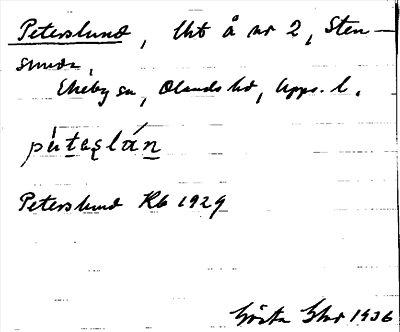 Peterslund, Uht å nr 2, Sten-
snida,
Ekeby sn, Olands hd, Upps. l.
pètaslán
Peterslund Kb 1929
Gösta 1936